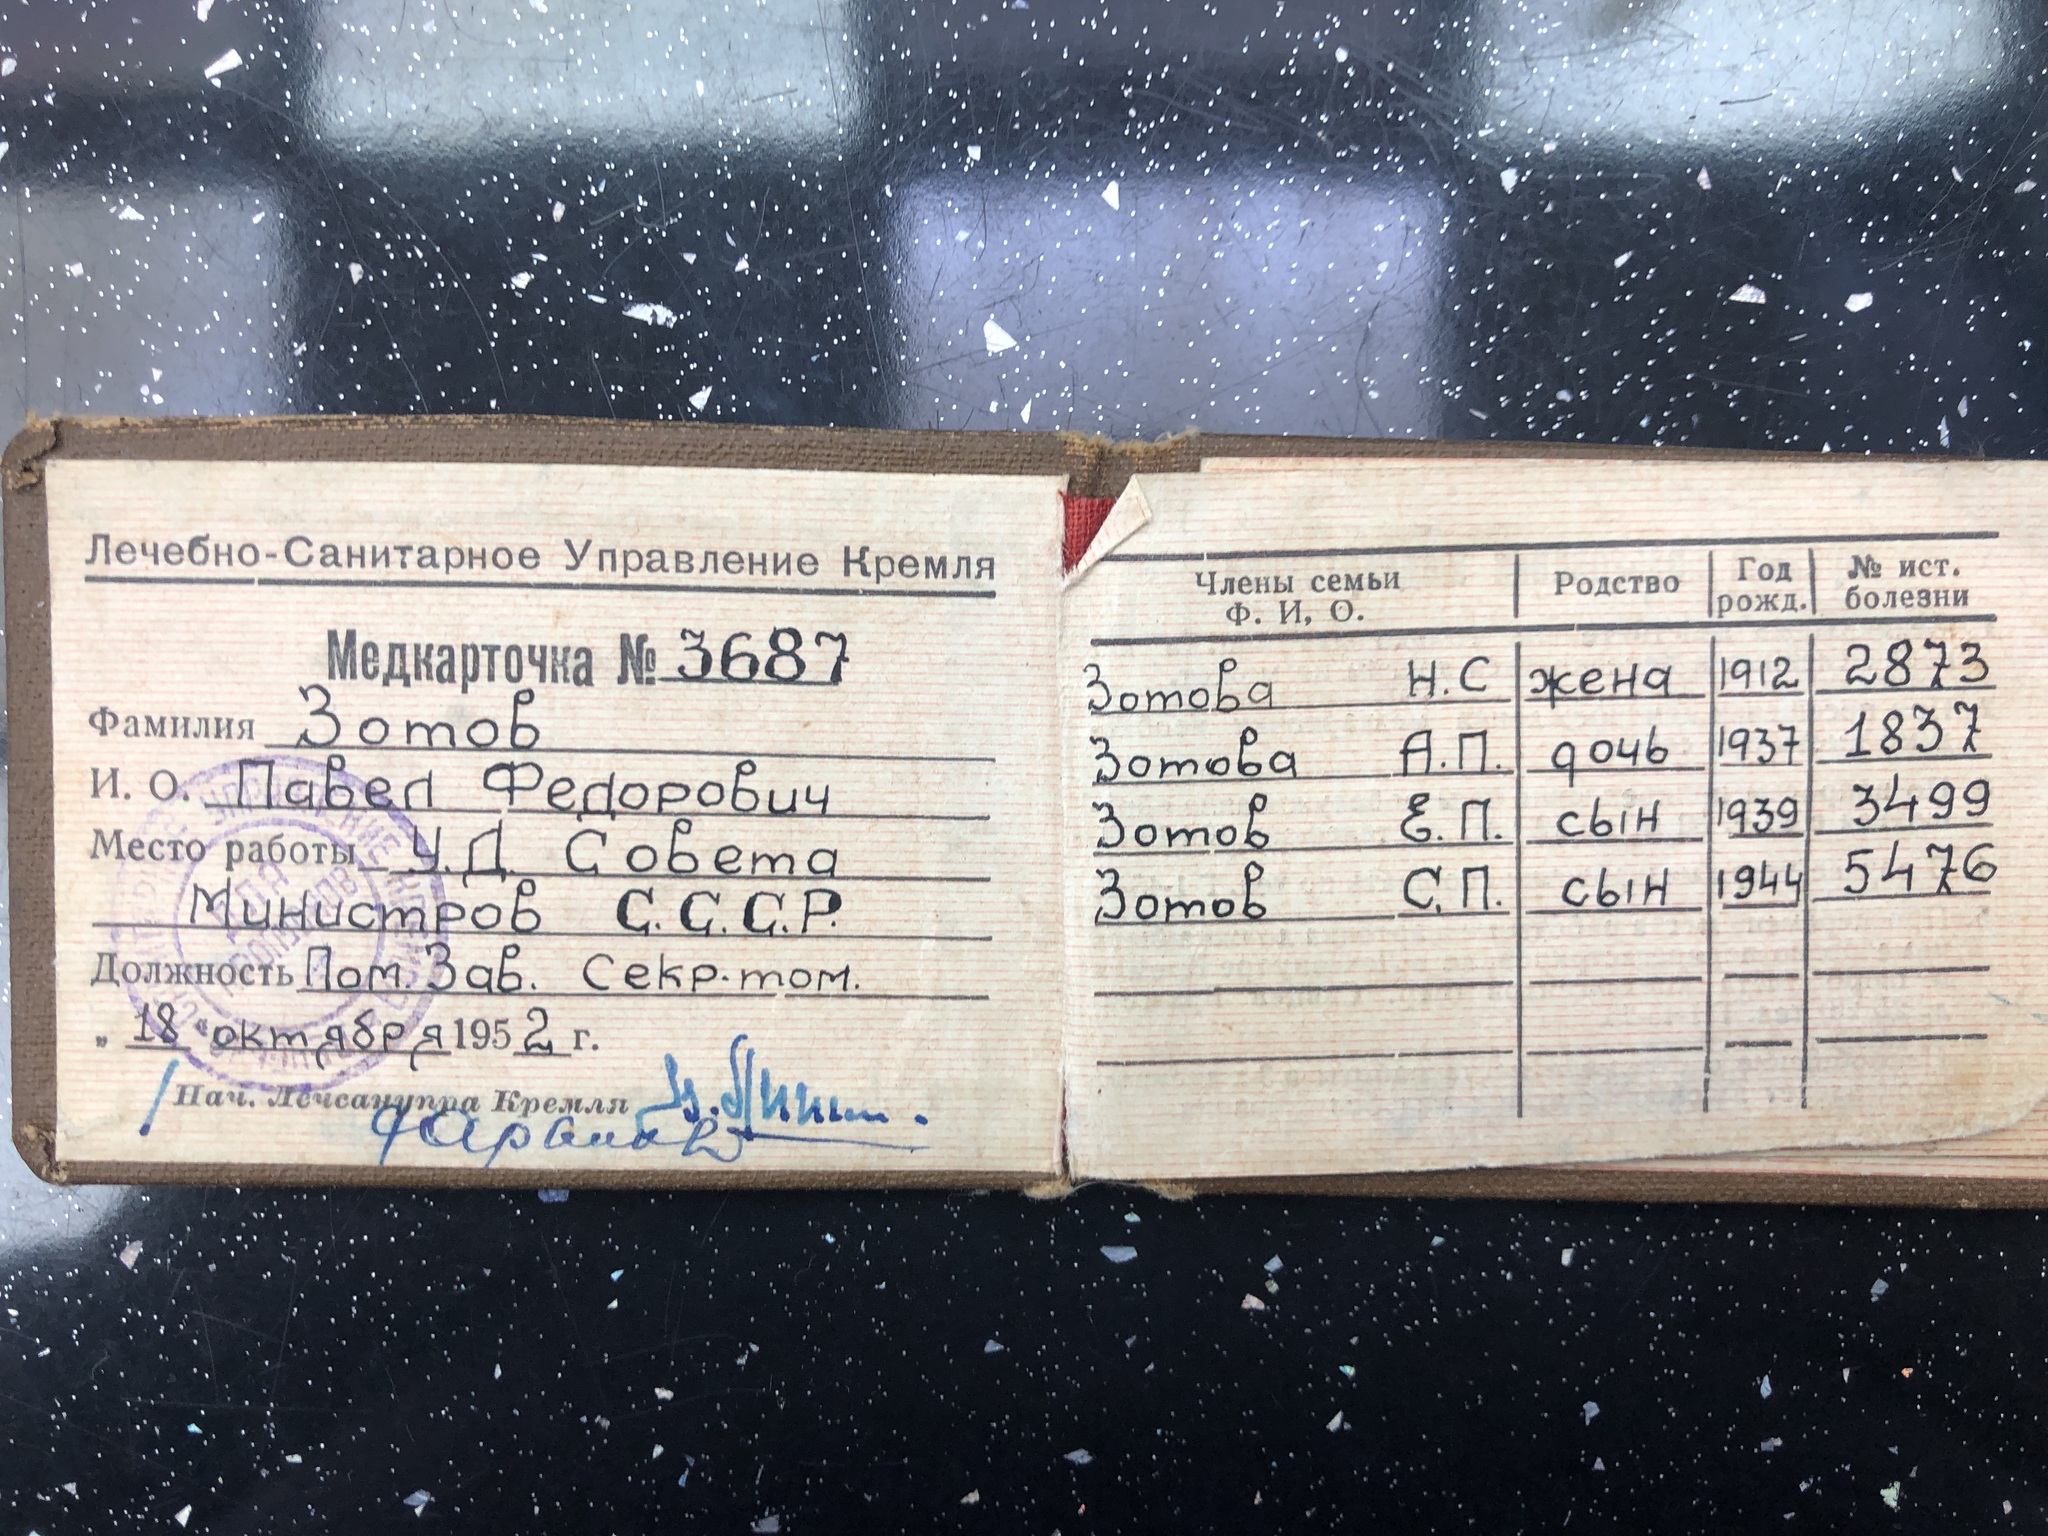 Лечебно-Санитарное Управление Кремля
Медкарточка № 3687
Фамилия Зотов
И. О. Павел Федорович
Место работы У.Д. Совета
Министров С.С.С.Р.
Должность Пом. Зав. Секр-том.
„ 18 “ октября 1952 г.
Нач. Лечсанупра Кремля
Члены семьи Ф. И, О. Родство Год рожд. № ист. болезни
Зотова Н.С жена 1912 2873
Зотова А.П. дочь 1937 1837
Зотов Е.П. сын 1939 3499
Зотов С.П. сын 1944 5476